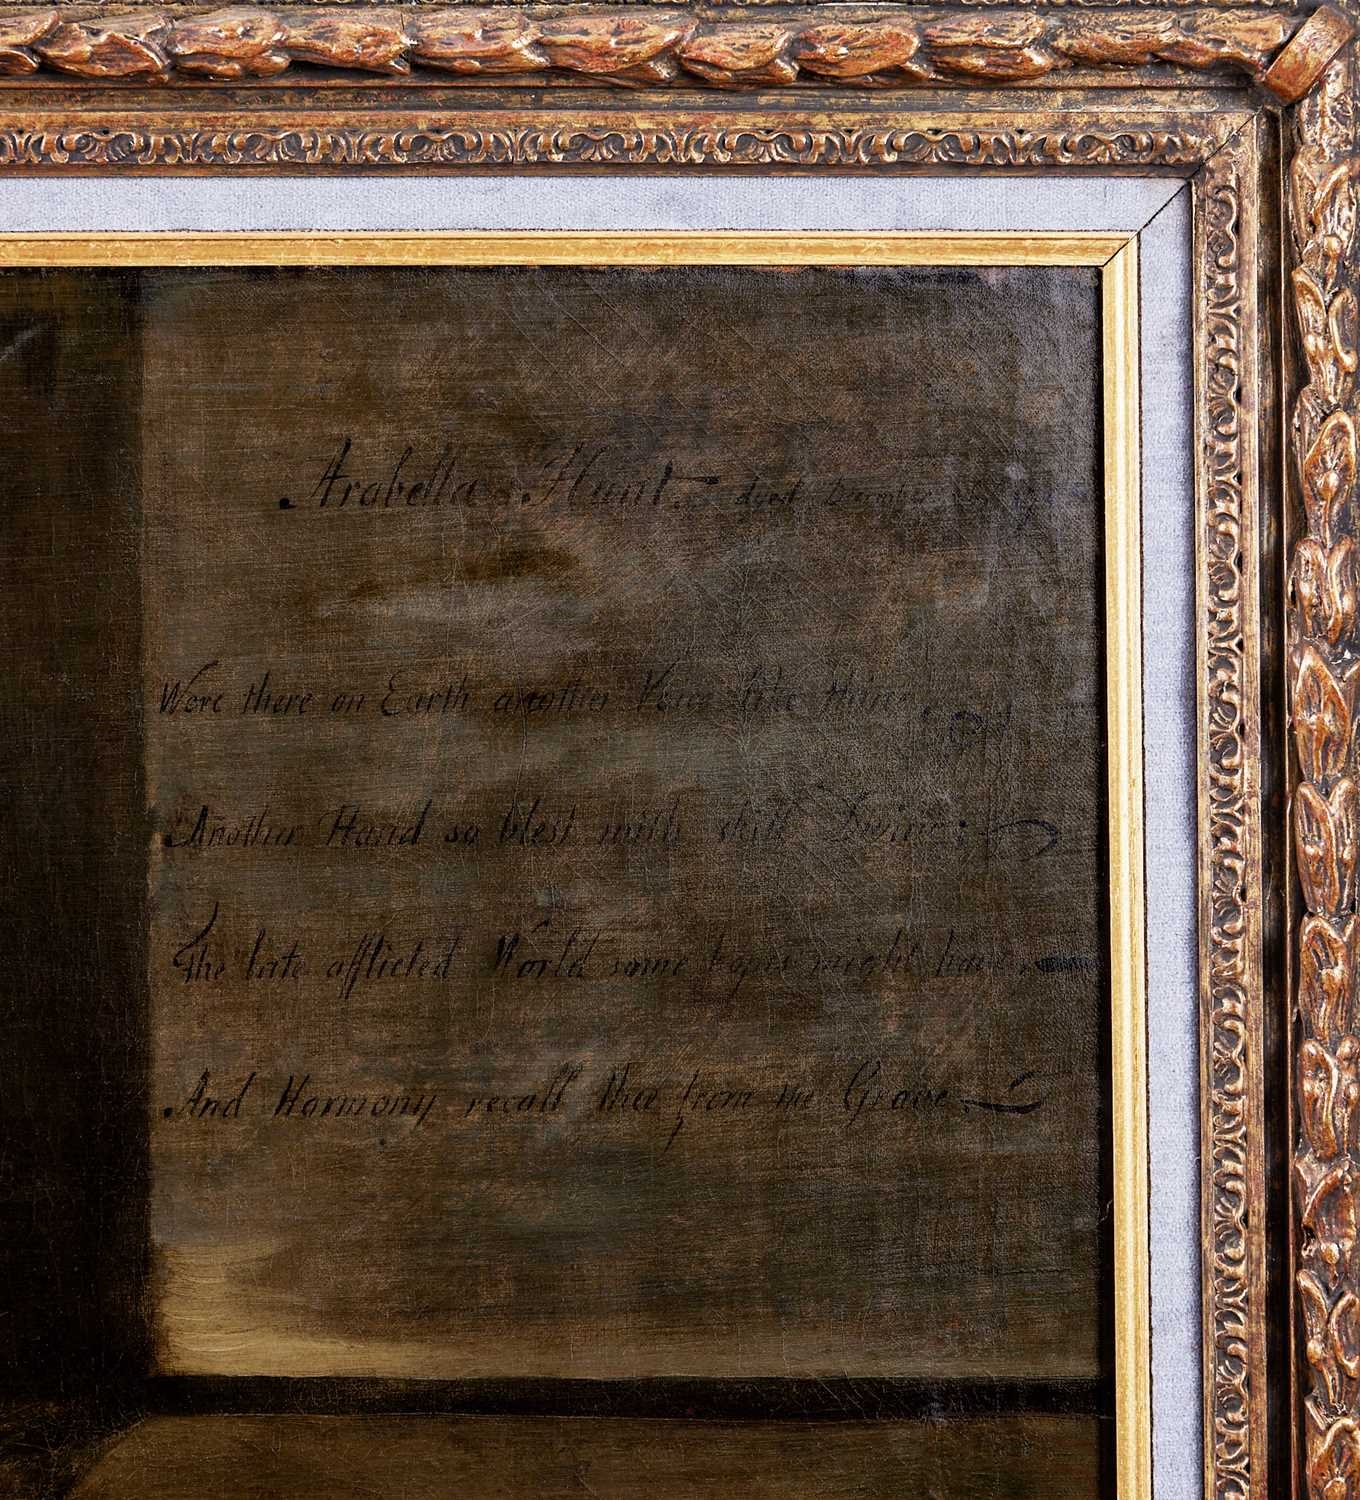 Arabella Hunt. died December
Were there on Earth another Voice like thine
Another Hand so blest with skill Divine;
The late afflicted World some hopes might have
And Harmony recall thee from the Grave.